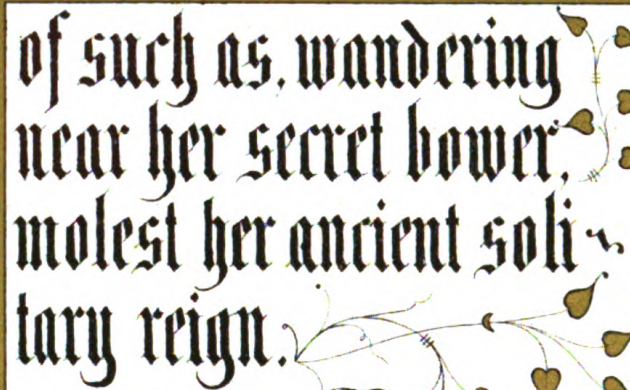 of such as, wandering
near her secret bower,
molest her ancient soli-
tary reign.